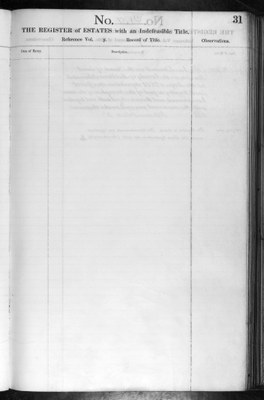 No. 31
THE REGISTER of ESTATES with an Indefeasible Title.
Reference Vol. Record of Title. Observations.
Date of Entry. Description.